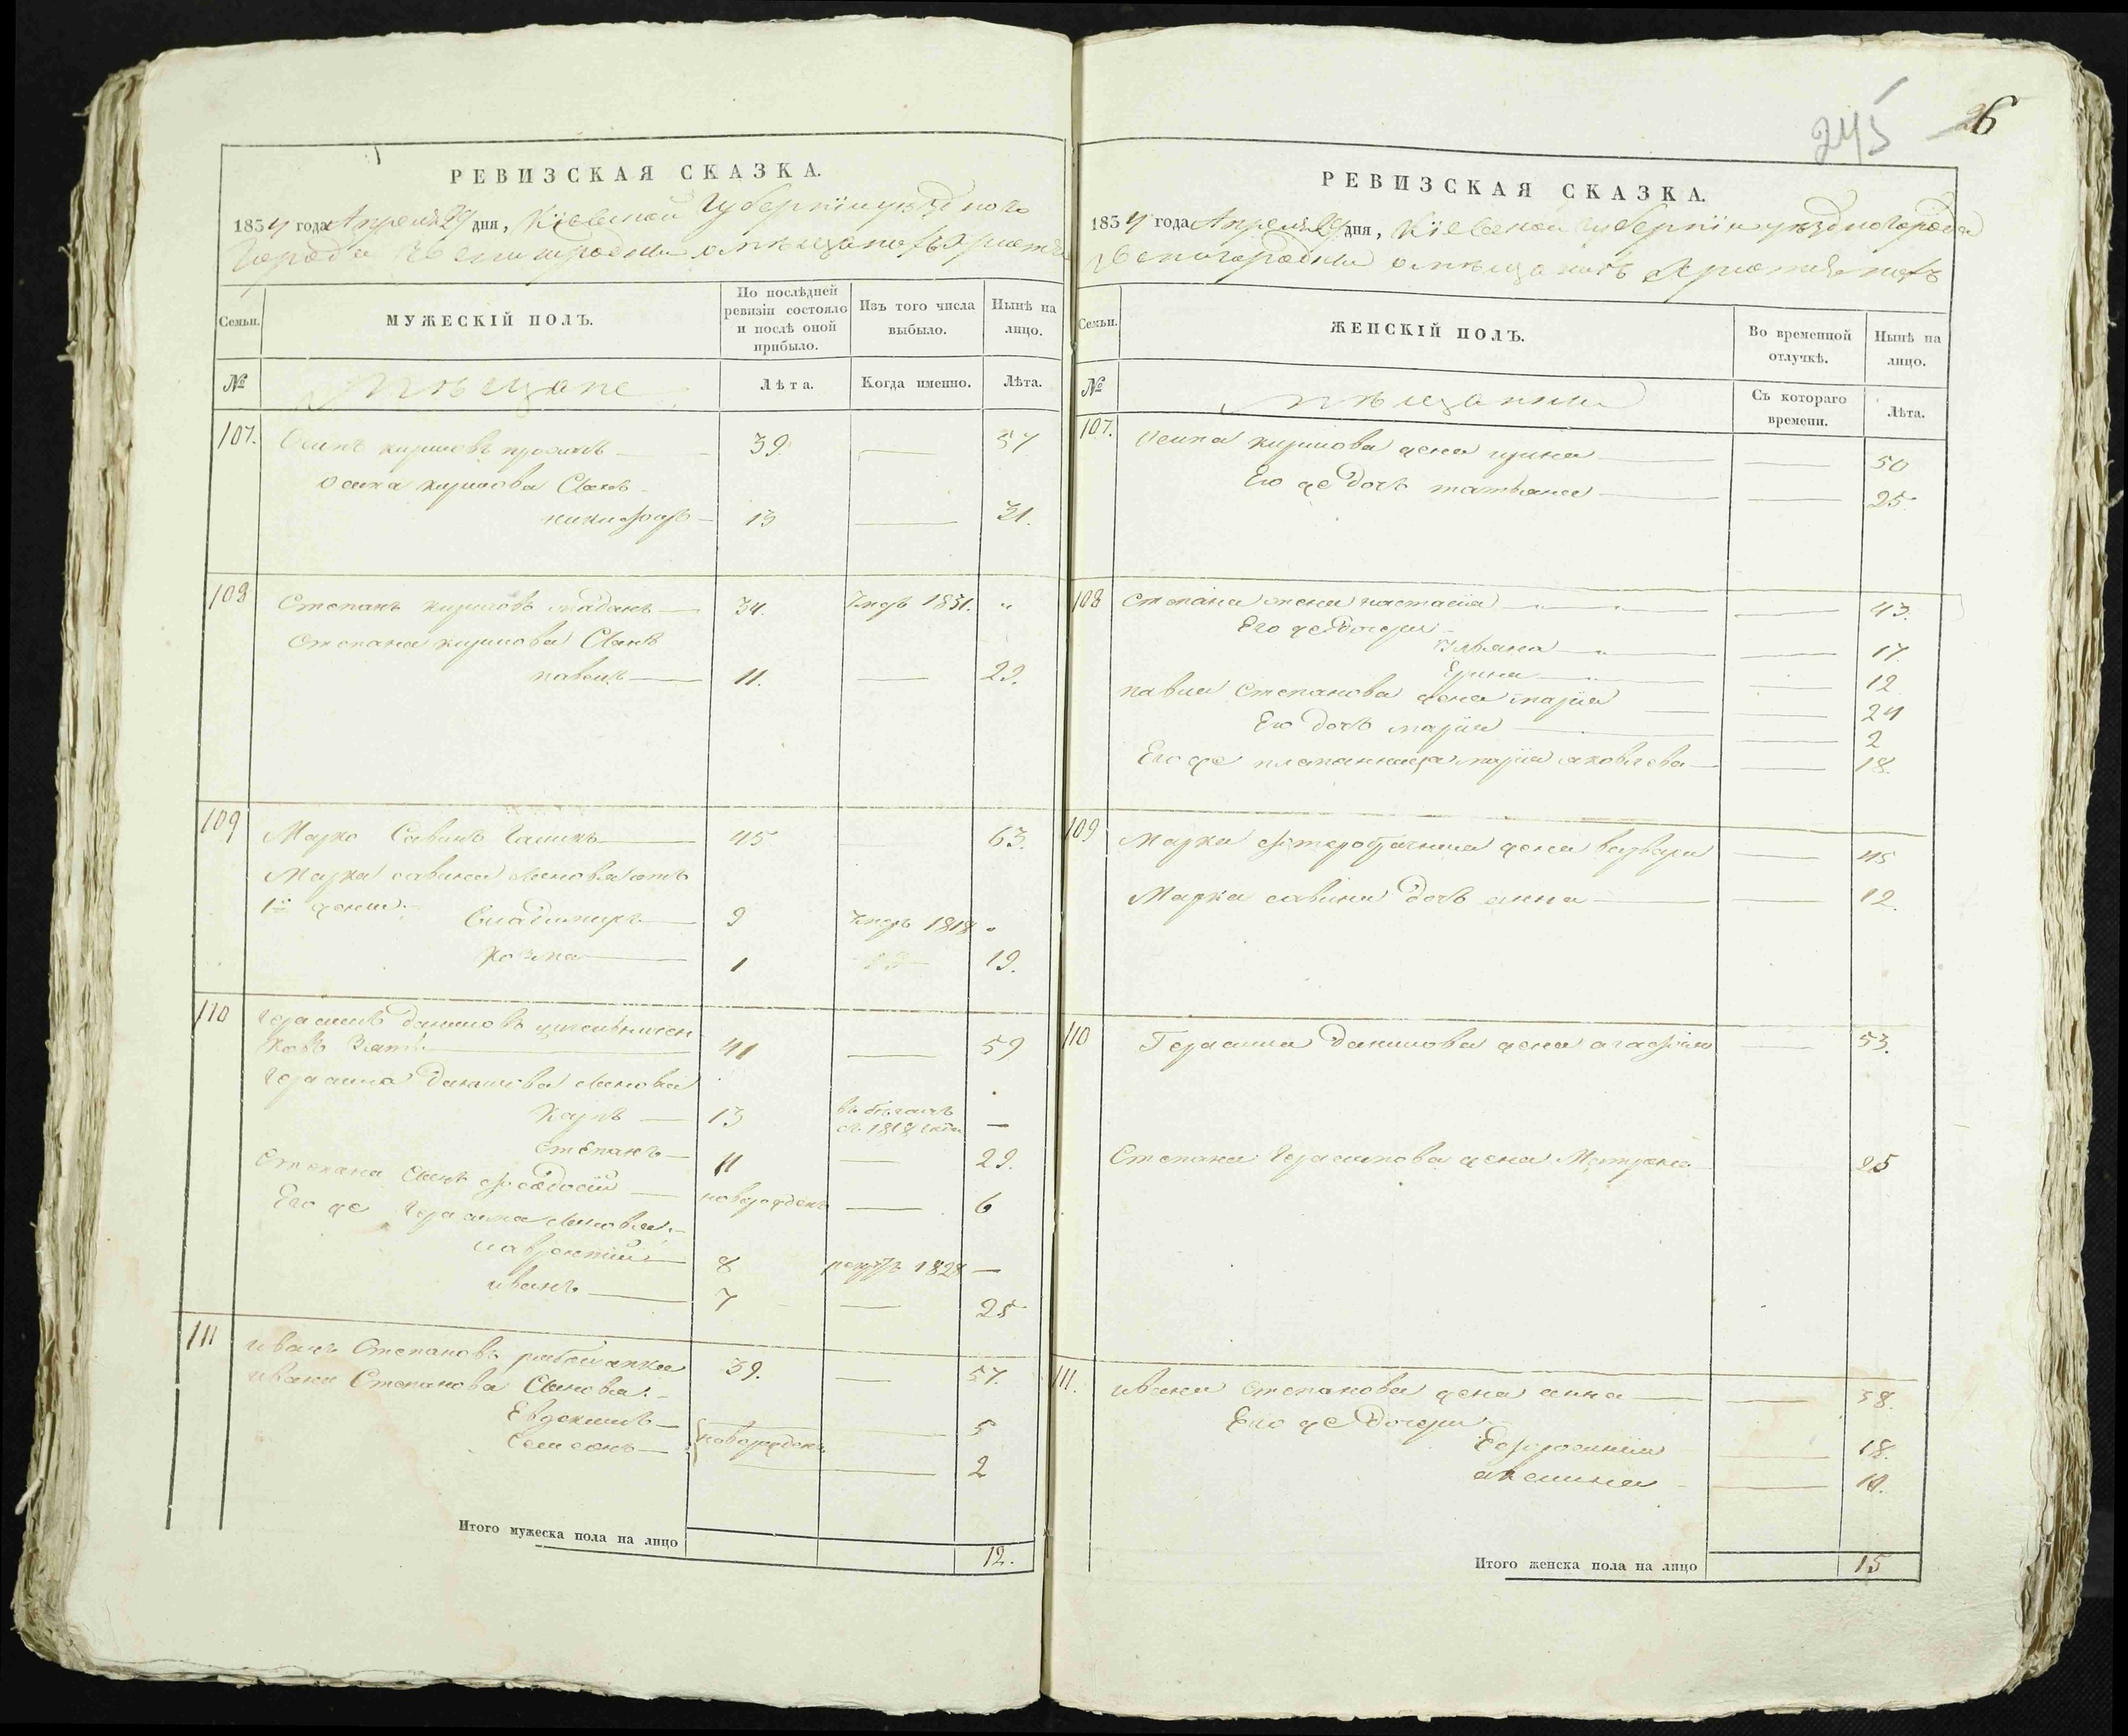 245
26
РЕВИЗСКАЯ СКАЗКА.
1834 года Апреля 29 дня, Кіевской Губерніи уѣзднаго
Города Звенигородки о мѣщанахъ Христіянахъ
Семьи. МУЖЕСКІЙ ПОЛЪ. По послѣдней ревизіи состояло и послѣ оной прибыло. Изъ того числа выбыло. Нынѣ на лицо.
№ Мѣщане Лѣта. Когда именно. Лѣта.
107. Осипъ Кириловъ 39 — 57
Осипа Кирилова Сынъ
никифоръ 13 — 31.
108 Степанъ Кириловъ 34. Умеръ 1831. „
Степана Кирилова Сынъ
павелъ 11. — 29.
109 Марко Савинъ 45 63.
Марка савина Сыновья отъ
1й жены
Владимиръ 9 Умеръ 1818 „
Козма 1 19.
110 Герасимъ Даниловъ
Зять 41 — 59
Герасима Данилова Сыновья
Карпъ 13 въ бѣгахъ
съ 1818 года —
Степанъ 11 — 29.
Степана Сынъ феодосій новорожденъ — 6
Его же Герасима Сыновья
лаврентій 8 рекрутъ 1828 —
иванъ 7 — 25
111 иванъ Степановъ 39. — 57.
ивана Степанова Сыновья
Евдокимъ новорожденъ — 5
Семенъ — 2
Итого мужеска пола на лицо 12.
РЕВИЗСКАЯ СКАЗКА.
1834 года Апреля 29 дня, Кіевской Губерніи уѣзднаго Города
Звенигородки о мѣщанахъ Христіянахъ
Семьи. ЖЕНСКІЙ ПОЛЪ. Во временной отлучкѣ. Нынѣ на лицо.
№ Мѣщанки Съ котораго времени. Лѣта.
107. Осипа Кирилова жена ирина — 50
Его же дочь татьяна — 25
108 Степана жена настасія — 43.
Его же дочери
Ульяна — 17.
Ерина — 12
павла Степанова жена марія — 24
Его дочь марія — 2
Его же племянница марія яковлева — 18.
109 Марка жена варвара — 45
Марка савина дочь анна — 12.
110 Герасима Данилова жена агафія — 53.
Степана Герасимова жена Матрена 25
111. ивана степанова жена анна — 38.
Его же дочери
Ефросинія — 18.
акилина — 10.
Итого женска пола на лицо 15